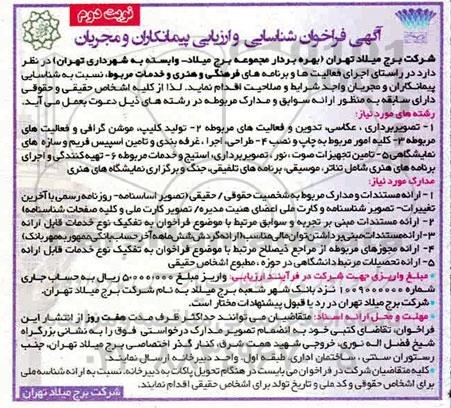 نوبت دوم
آگهی فراخوان شناسایی وارزیابی پیمانکاران و مجریان
شرکت برج میلاد تهران (بهره بردار مجموعه برج میلاد- وابسته به شهرداری تهران) در نظر
دارد در راستای اجرای فعالیت ها و برنامه های فرهنگی و هنری و خدمات مربوط، نسبت به شناسایی
پیمانکاران و مجریان واجد شرایط و صلاحیت اقدام نماید. لذا از کلیه اشخاص حقیقی و حقوقی
دارای سابقه به منظور ارائه سوابق و مدارک مربوطه در رشته های ذیل دعوت بعمل می آید.
رشته های مورد نیاز:
۱- تصویربرداری ، عکاسی، تدوین و فعالیت های مربوطه ۲- تولید کلیپ، موشن گرافی و فعالیت های
مربوطه ۳- کلیه امور مربوط به چاپ و نصب ۴- طراحی، اجرا ، غرفه بندی و تامین اسپیس فریم و سازه های
نمایشگاهی ۵- تامین تجهیزات صوت، نور ، تصویربرداری، استیج و خدمات مربوطه ۶- تهیه کنندگی و اجرای
برنامه های هنری شامل تئاتر، موسیقی، برنامه های تلفیقی، جنگ و برگزاری نمایشگاه های هنری
مدارک مورد نیاز:
۱- ارائه مستندات و مدارک مربوط به شخصیت حقوقی / حقیقی (تصویر اساسنامه- روزنامه رسمی با آخرین
تغییرات- تصویر شناسنامه و کارت ملی اعضای هیئت مدیره/ تصویر کارت ملی و کلیه صفحات شناسنامه)
۲- ارائه مستندات مبنی بر تجربه و سوابق مرتبط با موضوع فراخوان به تفکیک نوع خدمات قابل ارائه
۳- ارائه مستندات مبنی بر داشتن توان مالی مناسب (ارائه گردش شش ماهه آخر حساب بانکی ممهور به مهر بانک)
۴- ارائه مجوزهای مربوطه از مراجع ذیصلاح مرتبط با موضوع فراخوان به تفکیک نوع خدمات قابل ارائه
۵- ارائه تحصیلات مرتبط دانشگاهی در حوزه ، مطبوع اشخاص حقیقی
مبلغ واریزی جهت شرکت در فرآیند ارزیابی: واریز مبلغ ۵،۰۰۰،۰۰۰ ریال به حساب جاری
شماره ۱۰۰۹۰۰۰۰۰۰ نزد بانک شهر شعبه برج میلاد به نام شرکت برج میلاد تهران.
شرکت برج میلاد تهران در رد یا قبول پیشنهادات مختار است.
مهلت و محل ارائه اسناد: متقاضیان می توانند حداکثر ظرف مدت هفت روز از انتشار این
فراخوان، تقاضای کتبی خود به انضمام تصویر مدارک درخواستی فوق را به نشانی بزرگراه
شیخ فضل اله نوری، خروجی شهید همت شرق، کنار گذر اختصاصی برج میلاد تهران، جنب
رستوران سنتی، ساختمان اداری طبقه اول، واحد دبیرخانه ارسال نمایند.
کلیه متقاضیان شرکت در فراخوان می بایست در هنگام تحویل پاکات به دبیرخانه، نسبت به ارائه شناسه ملی
برای اشخاص حقوقی و کد ملی و تاریخ تولد برای اشخاص حقیقی اقدام نمایند.
شرکت برج میلاد تهران